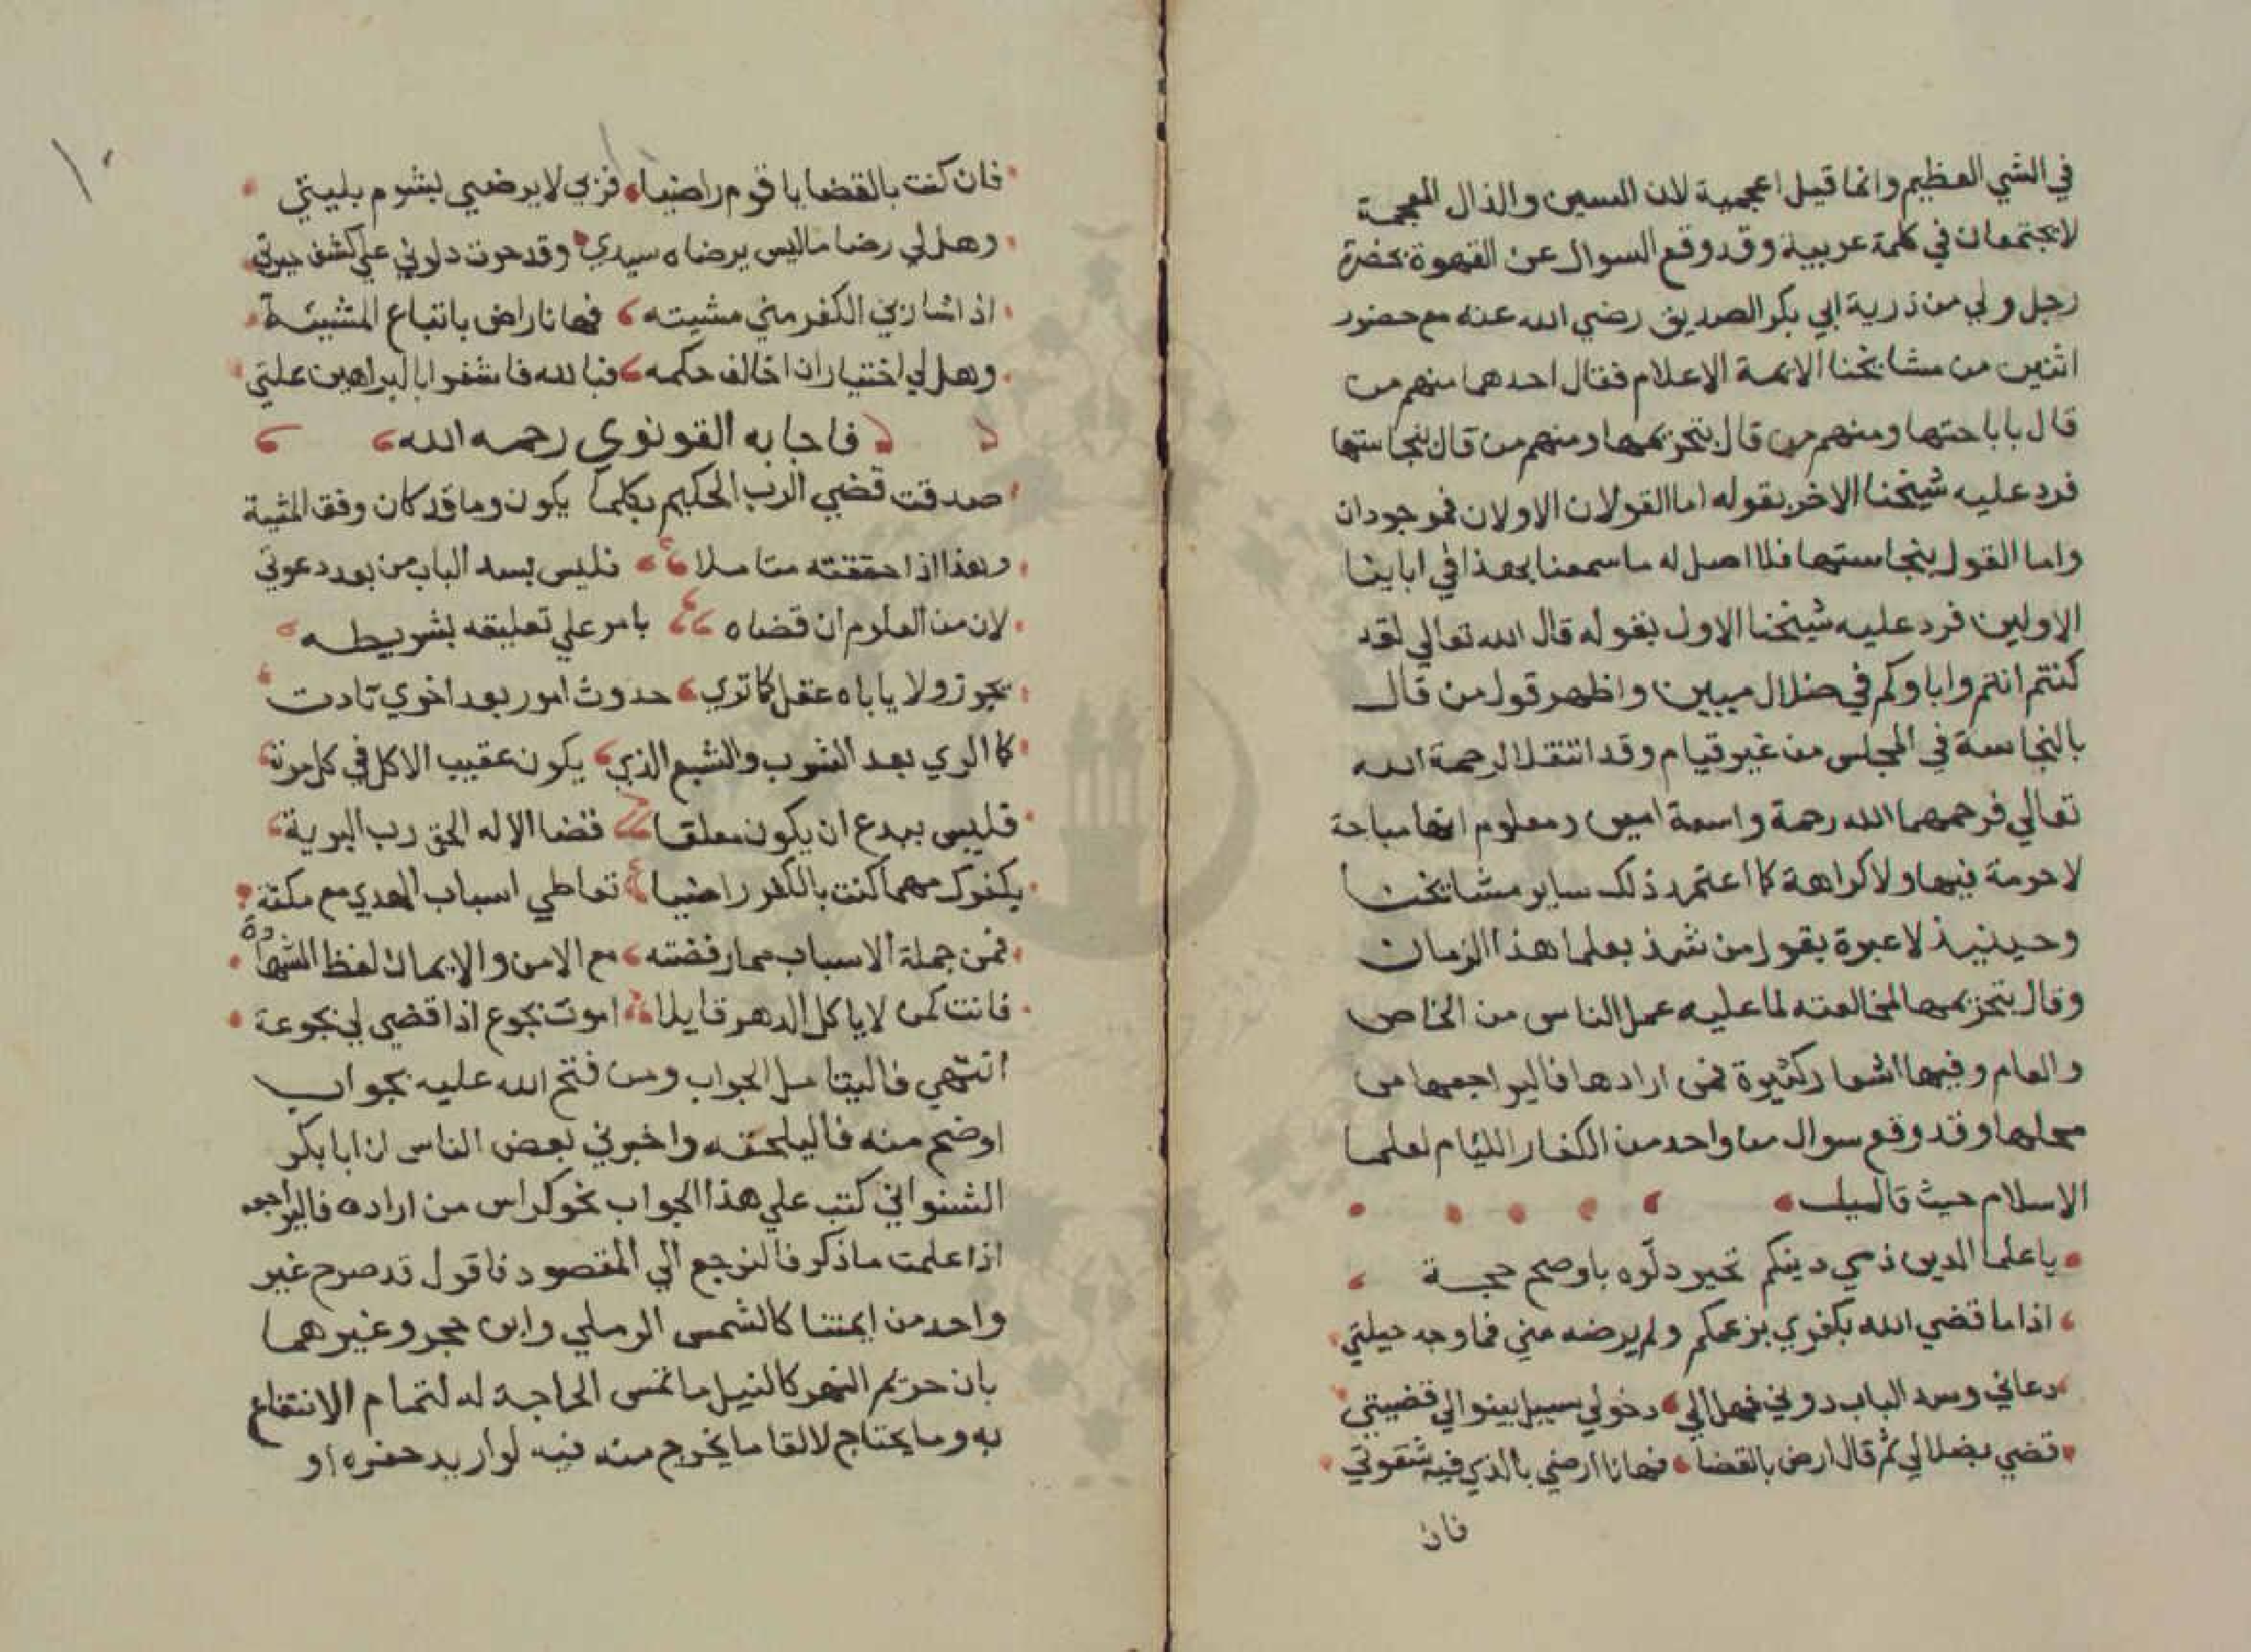 في الشي العظيم وانما قيل اعجمية لان السين والذال المعجمة
لا يجتمعان في كلمة عربية وقد وقع السوال عن القهوة بحضرة
رجل ولي من ذرية ابي بكر الصديق رضي الله عنه مع حضور
اثنين من مشايخنا الايمة الاعلام فقال احدهما منهم من
قال باباحتها ومنهم من قال بتحريمها ومنهم من قال بنجاستها
فرد عليه شيخنا الاخر بقوله اما القولان الاولان فموجودان
واما القول بنجاستها فلا اصل له ما سمعنا بهذا في اباينا
الاولين فرد عليه شيخنا الاول بقوله قال الله تعالي لقد
كنتم انتم واباوكم في ضلال مبين واظهر قول من قال
بالنجاسة في المجلس من غير قيام وقد انتقلا لرحمة الله
تعالي فرحمهما الله رحمة واسعة امين ومعلوم انها مباحة
لا حرمة فيها ولا كراهة كما اعتمد ذلك ساير مشايخنا
وحينيذ لا عبرة بقول من شذ بعلما هذا الزمان
وقال بتحريمها لمخالفته لما عليه عمل الناس من الخاص
والعام وفيها اشعار كثيرة فمن ارادها فاليراجعها من
محلها وقد وقع سوال من واحد من الكفار الليام لعلما
الاسلام حيث قال
يا علما الدين ذمي دينكم تحير دلوه باوضح حجة
اذا ما قضي الله بكفري بزعمكم ولم يرضه مني فما وجه حيلتي
دعاني وسد الباب دوني فهل الي دخولي سبيل بينوا لي قضيتي
قضي بضلالي ثم قال ارض بالقضا فها انا ارضي بالذي فيه شقوتي
فان
فان كنت بالقضا يا قوم راضيا فربي لا يرضي بشوم بليتي
وهل لي رضا ما ليس يرضاه سيدي وقد حرت دلوني علي كشف حيرتي
اذا شا ربي الكفر مني مشيته فها انا راض باتباع المشيئة
وهل لي اختيار ان اخالف حكمه فبالله فاشفوا بالبراهين علتي
فاجابه القونوي رحمه الله
صدقت قضي الرب الحكيم بكلما يكون وما قد كان وفق المشية
وهذا اذا حققته متاملا فليس يسد الباب من بعد دعوتي
لان من المعلوم ان قضاه بامر علي تعليقه بشريطه
يجوز ولا ياباه عقل كما تري حدوث امور بعد اخري تادت
كما الري بعد الشرب والشبع الذي يكون عقيب الاكل في كل مرة
فليس ببدع ان يكون معلقا قضا الاله الحق رب البرية
بكفرك مهما كنت بالكفر راضيا تعاطي اسباب الهدي مع مكنة
فمن جملة الاسباب مما رفضته مع الامن والايمان لفظ الشهادة
فانت كمن لا ياكل الدهر قايلا اموت بجوع اذا قضي لي بجوعة
انتهي فاليتامل الجواب ومن فتح الله عليه بجواب
اوضح منه فاليلحقه واخبرني بعض الناس ان ابا بكر
الشنواني كتب علي هذا الجواب نحو كراس من اراده فاليراجعه
اذا علمت ما ذكر فالنرجع الي المقصود فاقول قد صرح غير
واحد من ايمتنا كالشمس الرملي وابن حجر وغيرهما
بان حريم النهر كالنيل ما تمس الحاجة له لتمام الانتفاع
به وما يحتاج لالقا ما يخرج منه فيه لو اريد حفره او